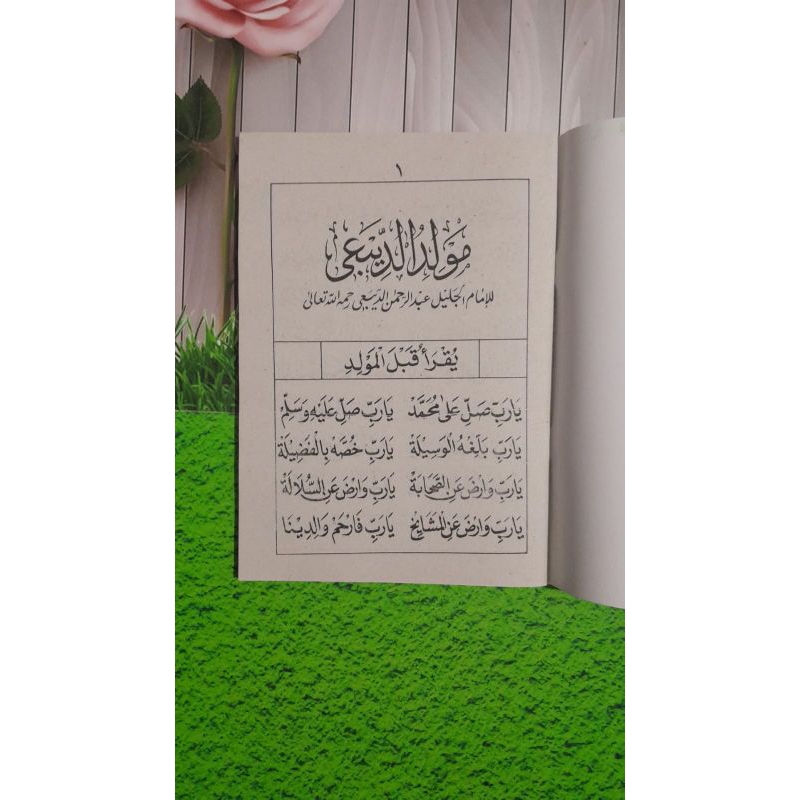 ١
مَوْلِدُ الدِّيْبَعِي
للإمام الجليل عبد الرحمن الديبعي رحمه الله تعالى
يُقْرَأُ قَبْلَ الْمَوْلِدِ
يَارَبِّ صَلِّ عَلَى مُحَمَّدْ يَارَبِّ صَلِّ عَلَيْهِ وَسَلِّمْ
يَارَبِّ بَلِّغْهُ الْوَسِيْلَةْ يَارَبِّ خُصَّهُ بِالْفَضِيْلَةْ
يَارَبِّ وَارْضَ عَنِ الصَّحَابَةْ يَارَبِّ وَارْضَ عَنِ السُّلَالَةْ
يَارَبِّ وَارْضَ عَنِ الْمَشَايِخْ يَارَبِّ فَارْحَمْ وَالِدِيْنَا